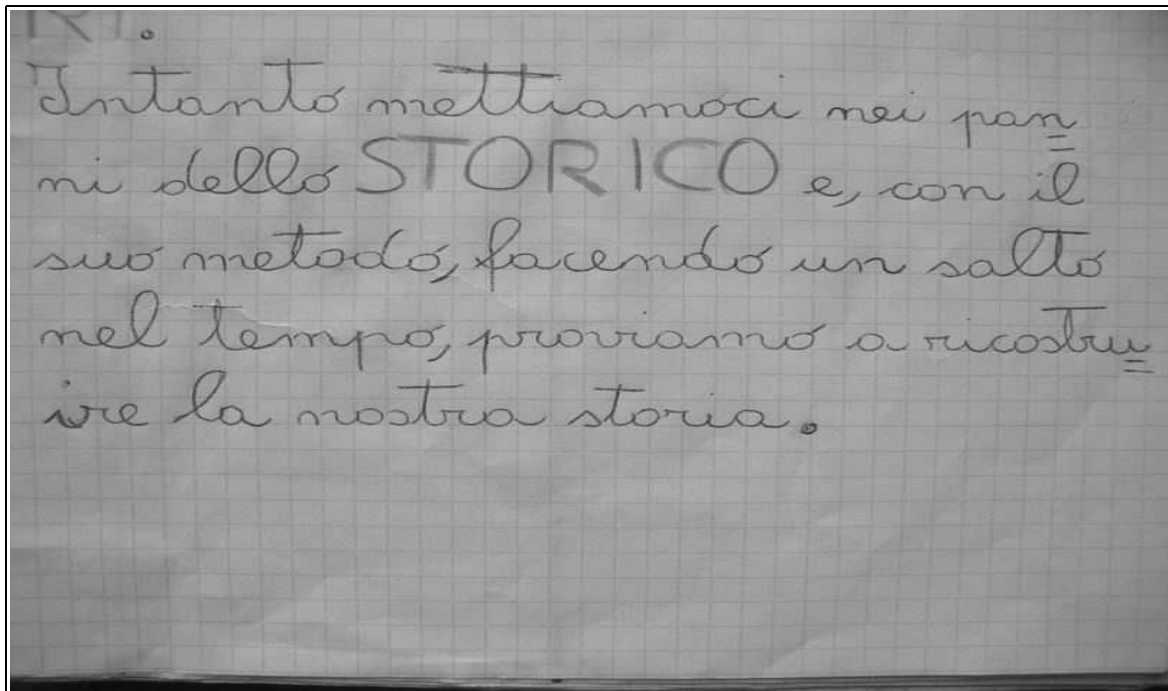 Intanto mettiamoci nei pan=
ni dello STORICO e, con il
suo metodo, facendo un salto
nel tempo, proviamo a ricostru=
ire la nostra storia.